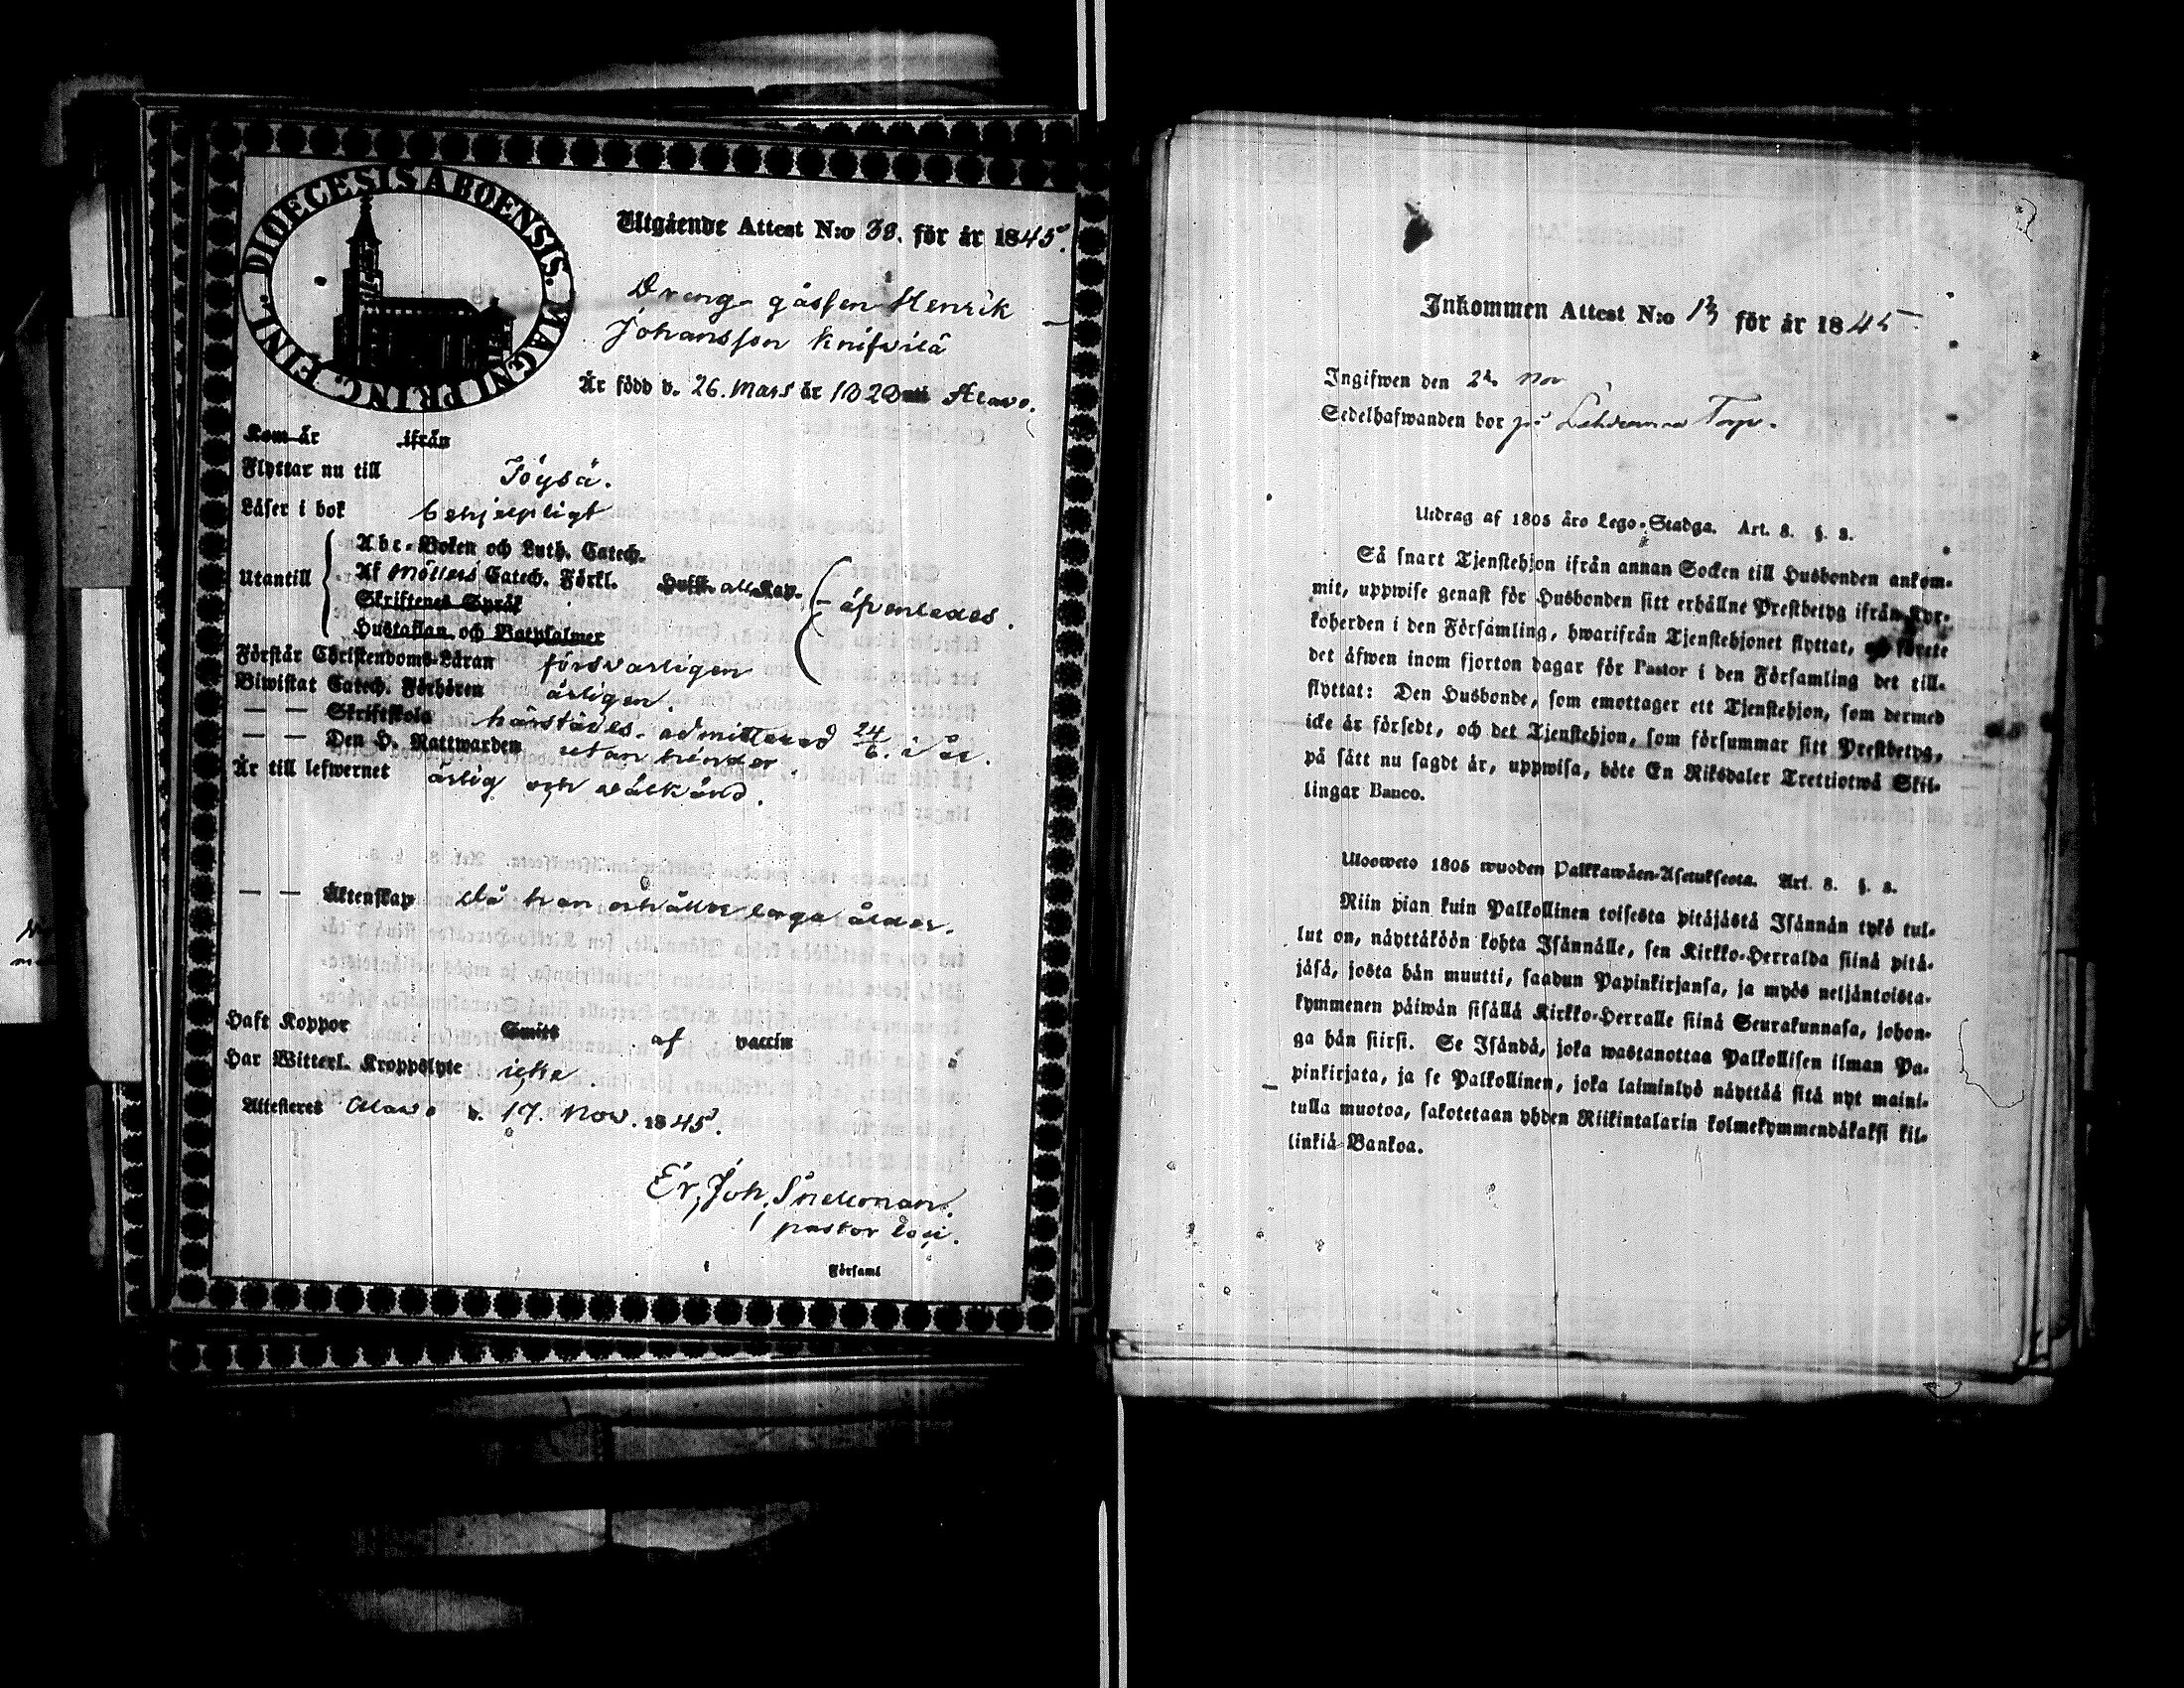 DIOECESIS ABOENSIS. MAGNI PRINC. FINL.
Utgående Attest N:o 38. för år 1845.
Dreng-gåssen Henrik
Johansson Knifvilä
Är född d. 26. Mars år 1828 uti Alavo.
Kom år ifrån
Flyttar nu till Töysä.
Läser i bok behjelpligt
Utantill
Abc-Boken och Luth. Catech.
Af Möllers Catech. Förkl.
Skriftenes Språk
Hustaflan och Botpsalmer
försvarligen
Förstår Christendoms-Läran
Biwistat Catech. Förhören årligen.
— — Skriftskola härstädes. admitterad 24/6. i år.
— — Den H. Nattwarden utan hinder.
Är till lefwernet ärlig och välkänd.
— — Äktenskap då han erhåller laga ålder.
Haft Koppor Smitt af vaccin
Har Witterl. Kroppslyte icke.
Attesteras Alavo d. 17. Nov. 1845.
Er. Joh. Snellman.
pastor loci.
Församl
Inkommen Attest N:o 13 för år 1845
Ingifwen den Nov
Sedelhafwanden bor på Torp.
Utdrag af 1805 års Lego-Stadga. Art. 8. §. 8.
Så snart Tjenstehjon ifrån annan Socken till Husbonden ankom-
mit, uppwise genast för Husbonden sitt erhållne Prestbetyg ifrån Kyr-
koherden i den Församling, hwarifrån Tjenstehjonet flyttat, och förete
det äfwen inom fjorton dagar för Pastor i den Församling det till-
flyttat: Den Husbonde, som emottager ett Tjenstehjon, som dermed
icke är försedt, och det Tjenstehjon, som försummar sitt Prestbetyg,
på sätt nu sagdt är, uppwisa, böte En Riksdaler Trettiotwå Skil-
lingar Banco.
Ulosweto 1805 wuoden Palkkawäen-Asetuksesta. Art. 8. §. 8.
Niin pian kuin Palkollinen toisesta pitäjästä Isännän tykö tul-
lut on, näyttäköön kohta Isännälle, sen Kirkko-Herralda siinä pitä-
jäsä, josta hän muutti, saadun Papinkirjansa, ja myös neljäntoista-
kymmenen päiwän sisällä Kirkko-Herralle siinä Seurakunnasa, johon-
ga hän siirsi. Se Isändä, joka wastanottaa Palkollisen ilman Pa-
pinkirjata, ja se Palkollinen, joka laiminlyö näyttää sitä nyt maini-
tulla muotoa, sakotetaan yhden Riikintalarin kolmekymmendäkaksi kil-
linkiä Bankoa.